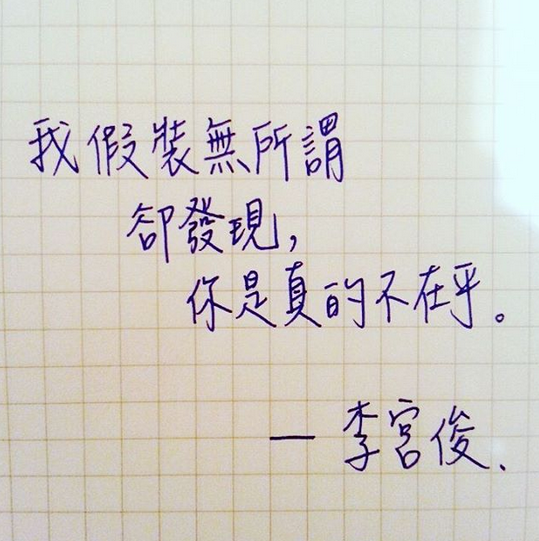 我假裝無所謂
卻發現,
你是真的不在乎。
— 李宮俊.